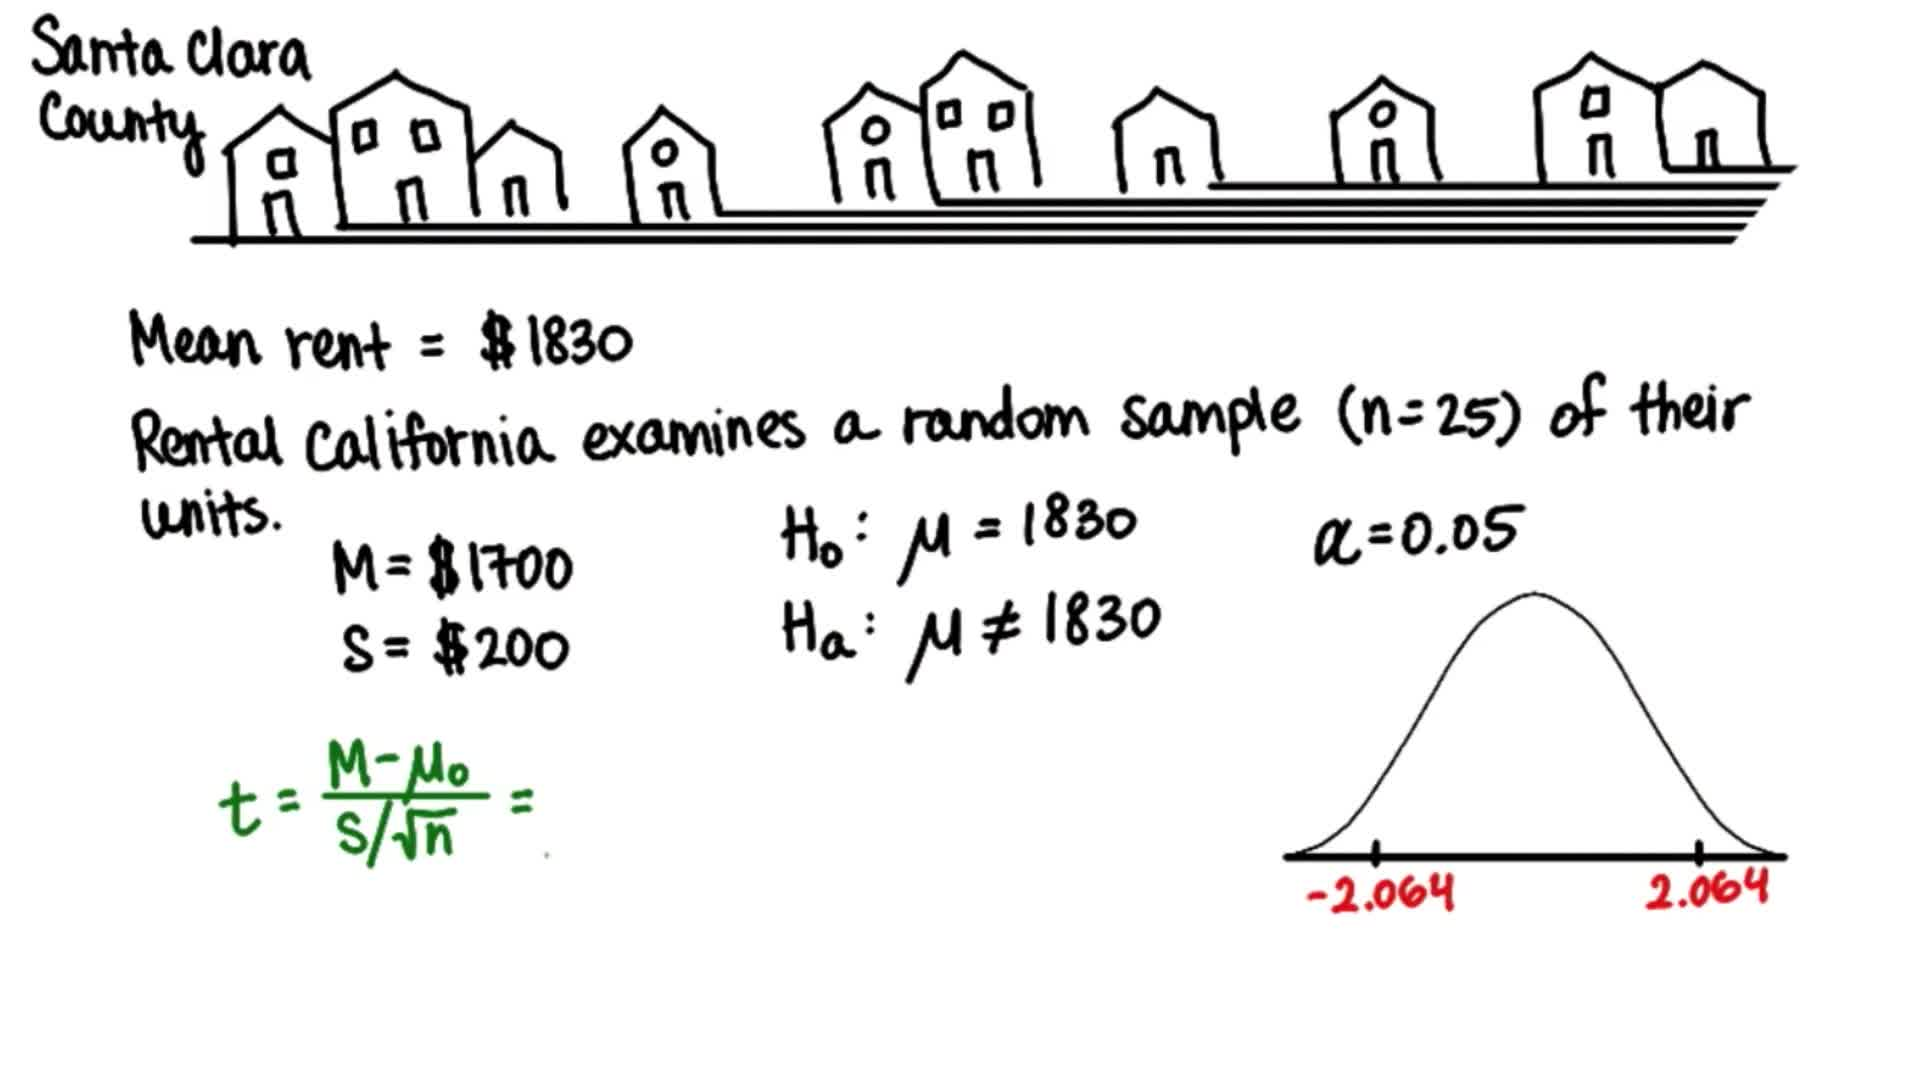 Santa Clara
County
Mean rent = $1830
Rental California examines a random sample (n=25) of their
units.
M = $1700
S = $200
H₀: μ = 1830
Hₐ: μ ≠ 1830
α = 0.05
t = M - μ₀ / S/√n =
-2.064 2.064